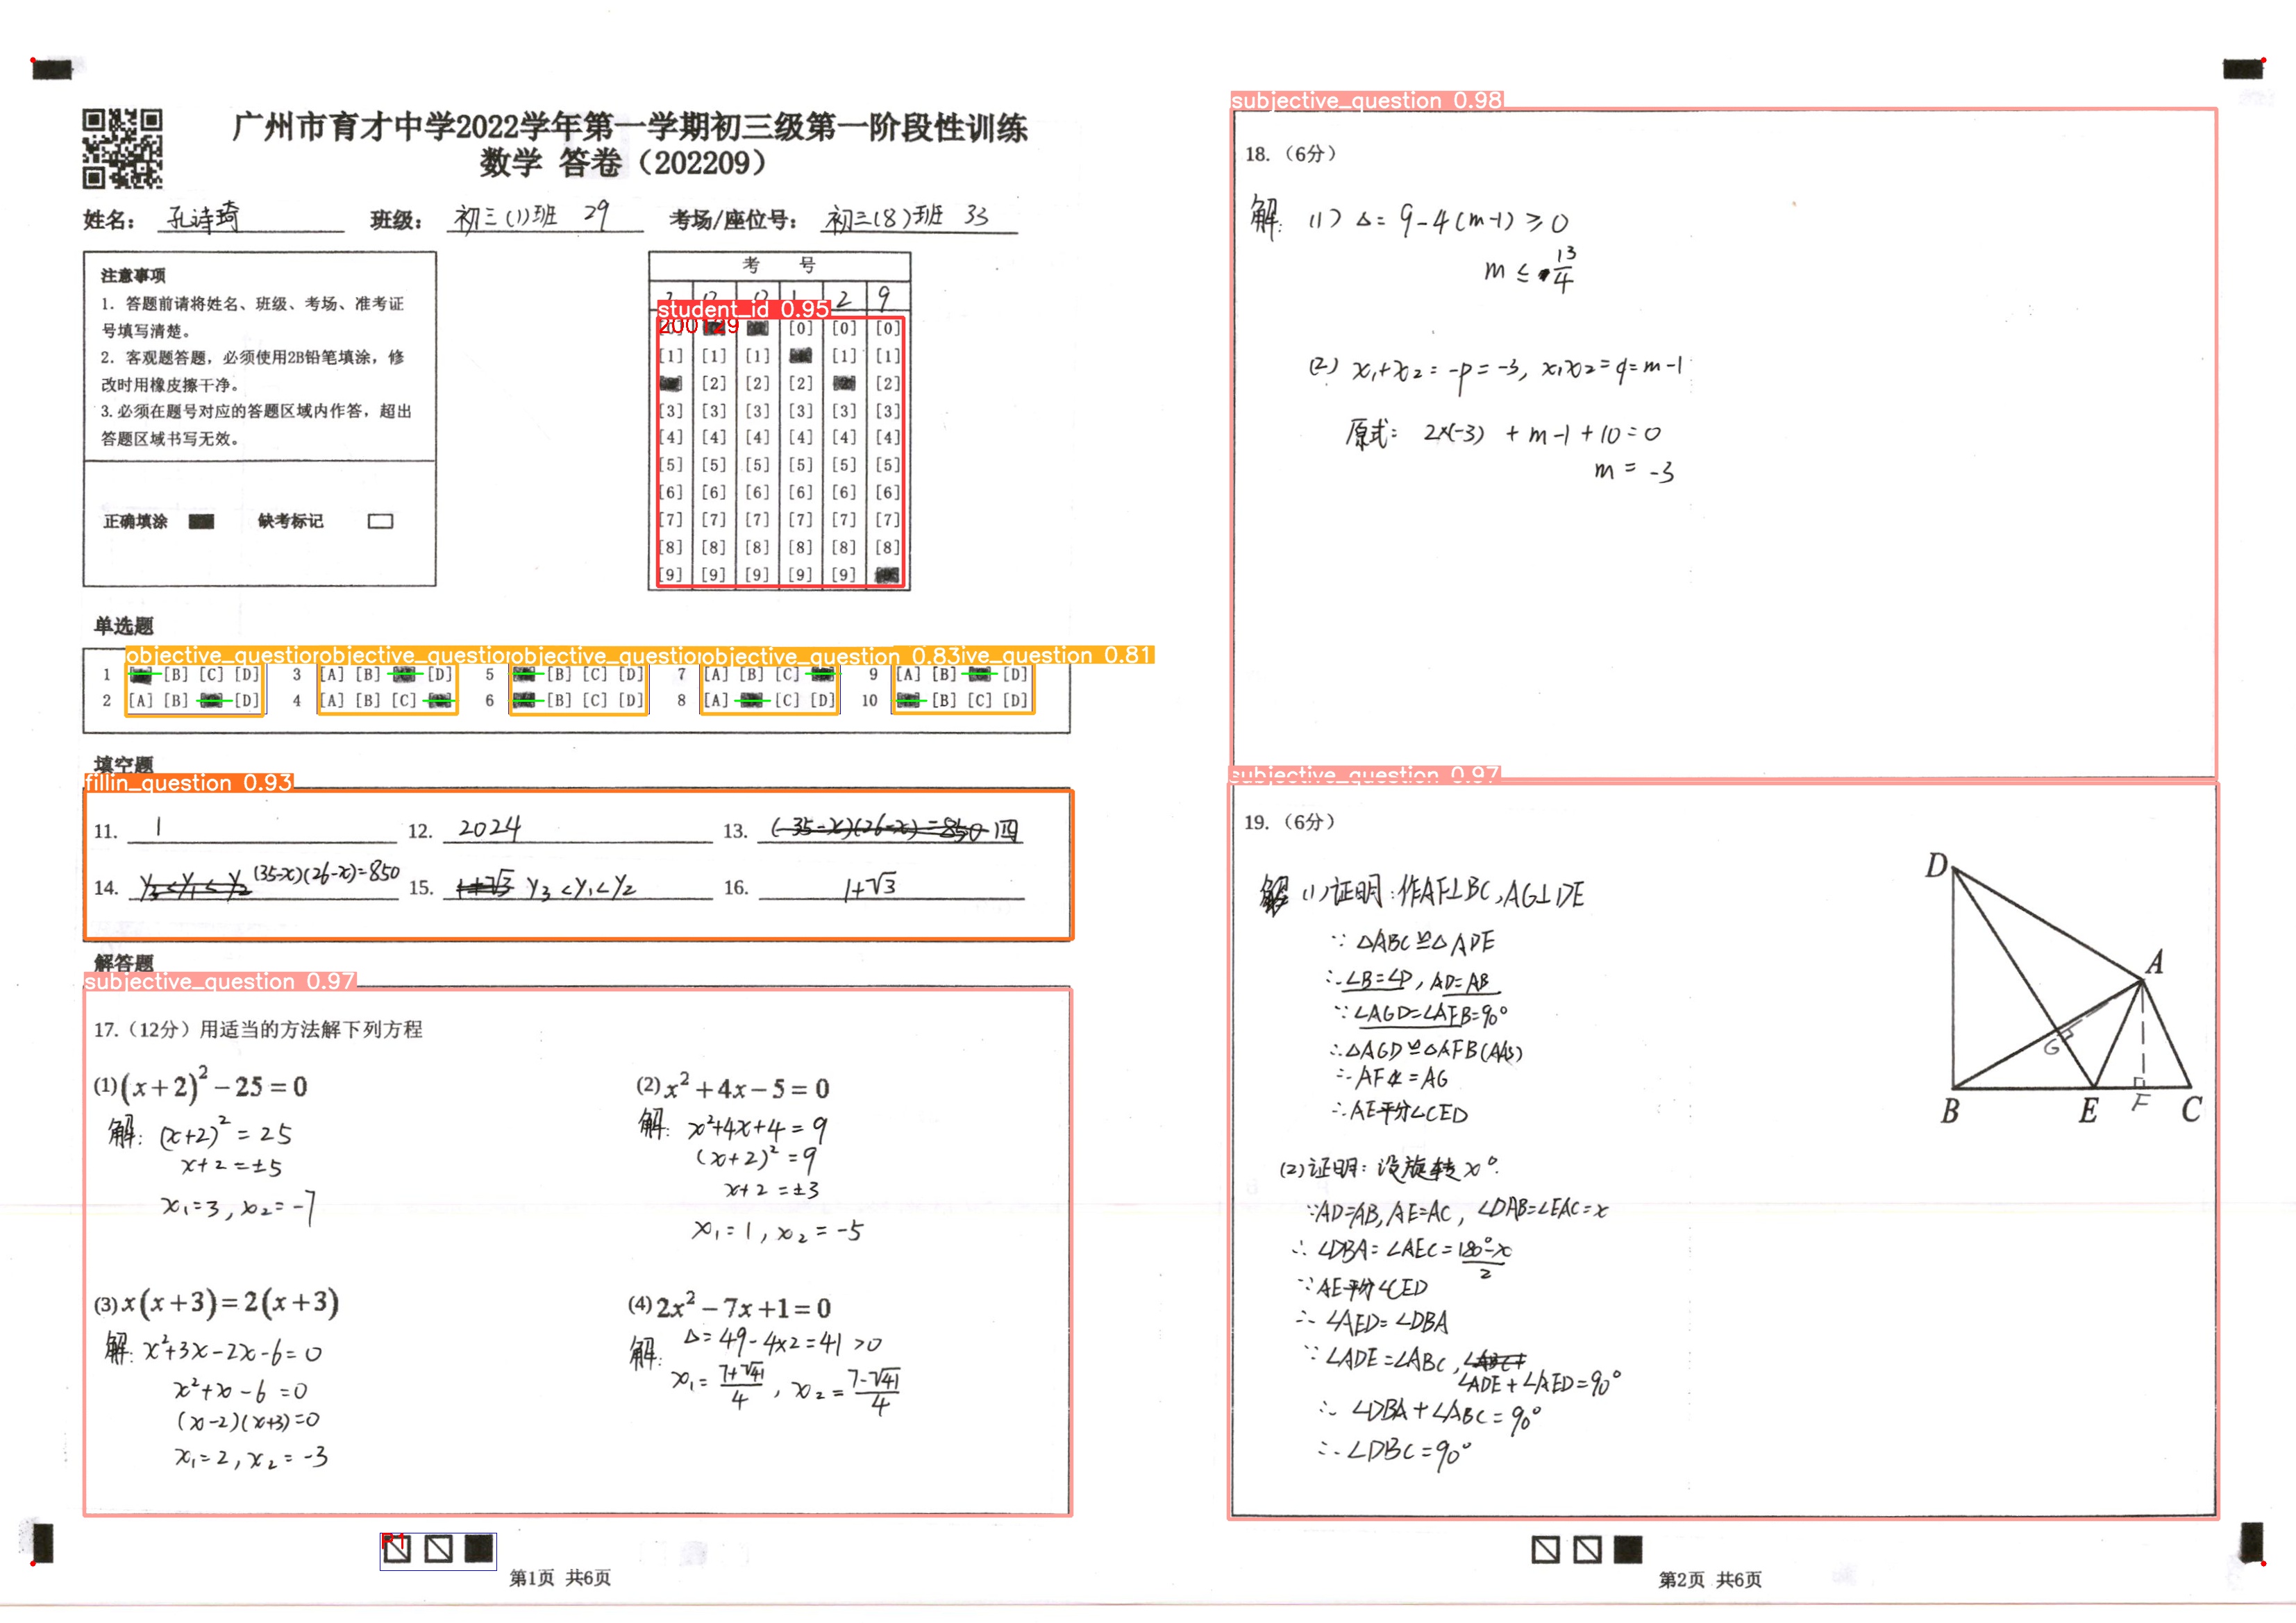 广州市育才中学2022学年第一学期初三级第一阶段性训练
数学 答卷（202209）
姓名： 孔诗琦 班级： 初三(1)班 29 考场/座位号： 初三(8)班 33
注意事项
1. 答题前请将姓名、班级、考场、准考证
号填写清楚。
2. 客观题答题，必须使用2B铅笔填涂，修
改时用橡皮擦干净。
3.必须在题号对应的答题区域内作答，超出
答题区域书写无效。
正确填涂 缺考标记
考 号
2 9
student_id 0.95
200129
[0] [0] [0]
[1] [1] [1] [1] [1]
[2] [2] [2] [2]
[3] [3] [3] [3] [3] [3]
[4] [4] [4] [4] [4] [4]
[5] [5] [5] [5] [5] [5]
[6] [6] [6] [6] [6] [6]
[7] [7] [7] [7] [7] [7]
[8] [8] [8] [8] [8] [8]
[9] [9] [9] [9] [9]
单选题
objective_question objective_question objective_question objective_question 0.83 ive_question 0.81
1 [B] [C] [D] 3 [A] [B] [D] 5 [B] [C] [D] 7 [A] [B] [C] 9 [A] [B] [D]
2 [A] [B] [D] 4 [A] [B] [C] 6 [B] [C] [D] 8 [A] [C] [D] 10 [B] [C] [D]
填空题
fillin_question 0.93
11. 1 12. 2024 13. (35-x)(26-x)=850 四
14. y₃<y₁<y₂ (35-x)(26-x)=850 15. 1+√3 y₃<y₁<y₂ 16. 1+√3
解答题
subjective_question 0.97
17.（12分）用适当的方法解下列方程
(1) (x+2)²-25=0
解: (x+2)²=25
x+2=±5
x₁=3, x₂=-7
(2) x²+4x-5=0
解: x²+4x+4=9
(x+2)²=9
x+2=±3
x₁=1, x₂=-5
(3) x(x+3)=2(x+3)
解: x²+3x-2x-6=0
x²+x-6=0
(x-2)(x+3)=0
x₁=2, x₂=-3
(4) 2x²-7x+1=0
解: Δ=49-4×2=41>0
x₁=(7+√41)/4, x₂=(7-√41)/4
P1
第1页 共6页
subjective_question 0.98
18.（6分）
解: (1) Δ=9-4(m-1)≥0
m≤13/4
(2) x₁+x₂=-p=-3, x₁x₂=q=m-1
原式: 2×(-3)+m-1+10=0
m=-3
subjective_question 0.97
19.（6分）
解 (1)证明:作AF⊥BC,AG⊥DE
∵△ABC≌△ADE
∴∠B=∠D, AD=AB
∵∠AGD=∠AFB=90°
∴△AGD≌△AFB(AAS)
∴AF=AG
∴AE平分∠CED
(2)证明: 设旋转x°.
∵AD=AB, AE=AC, ∠DAB=∠EAC=x
∴∠DBA=∠AEC=(180°-x)/2
∵AE平分∠CED
∴∠AED=∠DBA
∵∠ADE=∠ABC, ∠ABC+
∠ADE+∠AED=90°
∴∠DBA+∠ABC=90°
∴∠DBC=90°
D
A
G
B E F C
第2页 共6页